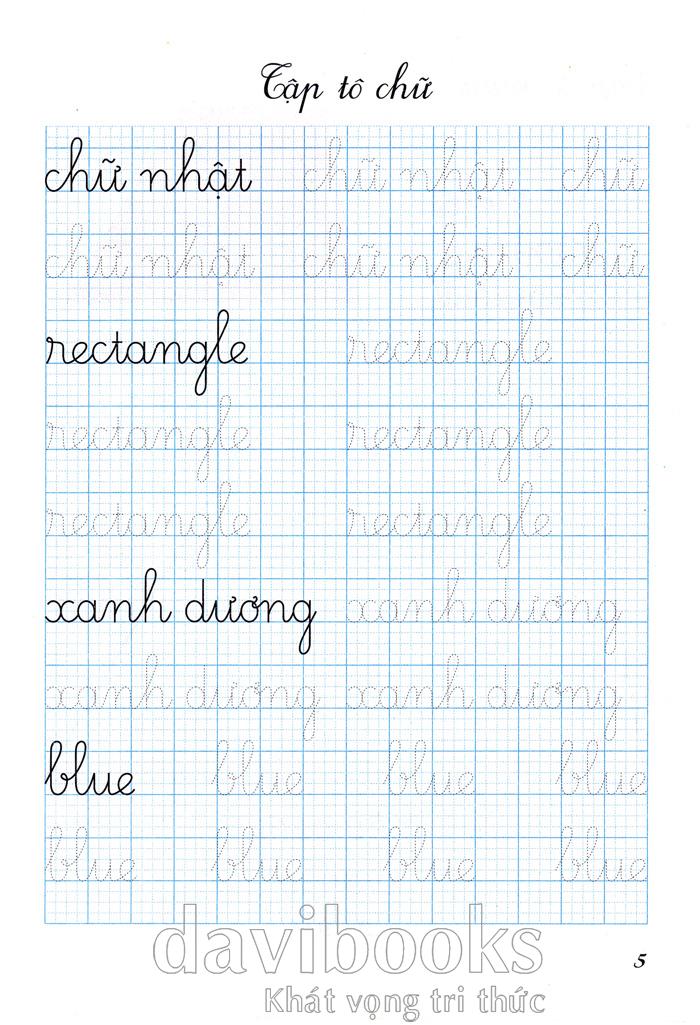 Tập tô chữ
chữ nhật chữ nhật chữ
chữ nhật chữ nhật chữ
rectangle rectangle
rectangle rectangle
rectangle rectangle
xanh dương xanh dương
xanh dương xanh dương
blue blue blue blue
blue blue blue blue
davibooks
5
Khát vọng tri thức